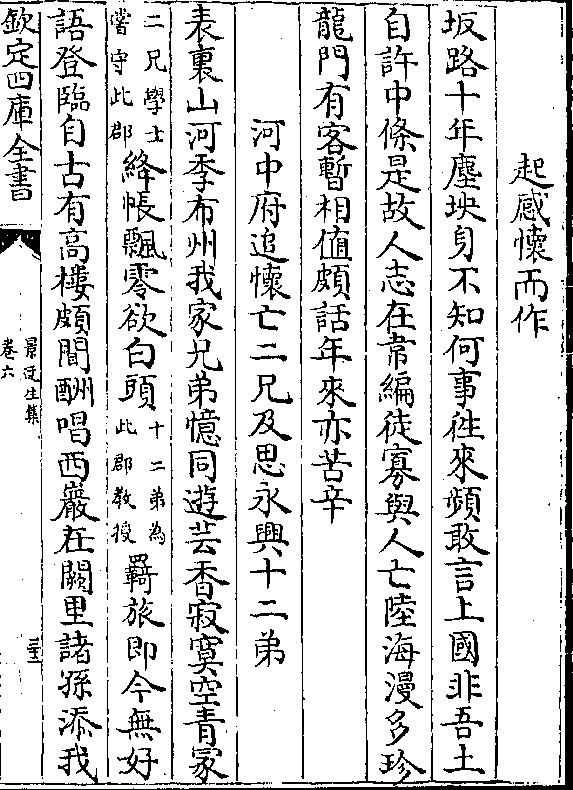 起感懐而作
坂路十年塵坱身不知何事徃來頻敢言上國非吾土
自許中條是故人志在韋編徒寡與人亡陸海漫多珍
龍門有客暫相值頗話年來亦苦辛
河中府追懐亡二兄及思永興十二弟
表裏山河季布州我家兄弟憶同遊芸香寂寞空青冢
二兄學士
嘗守此郡
絳帳飄零欲白頭
十二弟為
此郡教授
羇旅即今無好
語登臨自古有高樓頗聞酬唱西巖在闕里諸孫添我
欽定四庫全書
景迂生集
卷六